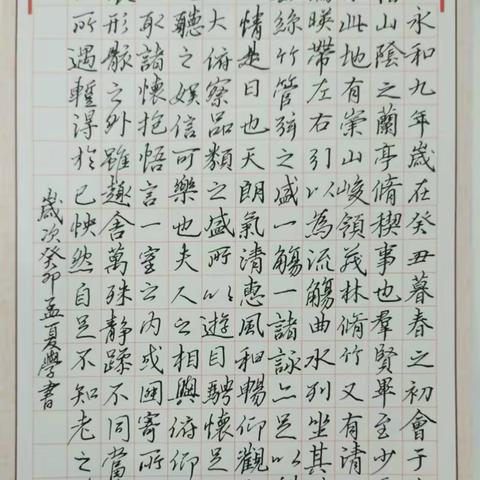 永和九年歲在癸丑暮春之初會于
山陰之蘭亭脩禊事也羣賢畢至少
此地有崇山峻領茂林脩竹又有清
暎帶左右引以為流觴曲水列坐其
絲竹管弦之盛一觴一諸詠亦足以
情是日也天朗氣清惠風和暢仰觀
大俯察品類之盛所以遊目騁懷足
聽之娛信可樂也夫人之相與俯仰
取諸懷抱悟言一室之內或因寄所
形骸之外雖趣舍萬殊靜躁不同當
所遇蹔得於己怏然自足不知老之
歲次癸卯孟夏學書